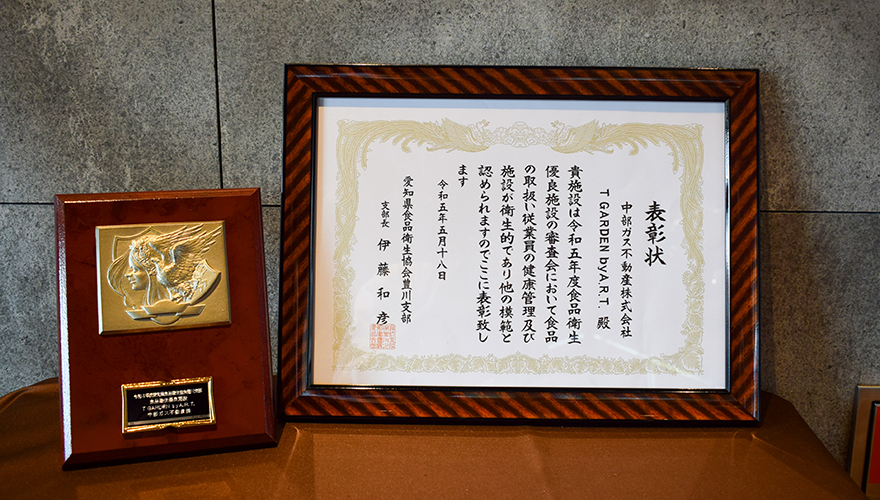 表彰状
中部ガス不動産株式会社
T GARDEN by A.R.T. 殿
貴施設は令和五年度食品衛生
優良施設の審査会において食品
の取扱い従業員の健康管理及び
施設が衛生的であり他の模範と
認められますのでここに表彰致し
ます
令和五年五月十八日
愛知県食品衛生協会豊川支部
支部長 伊藤和彦
T GARDEN by A.R.T.
中部ガス不動産㈱